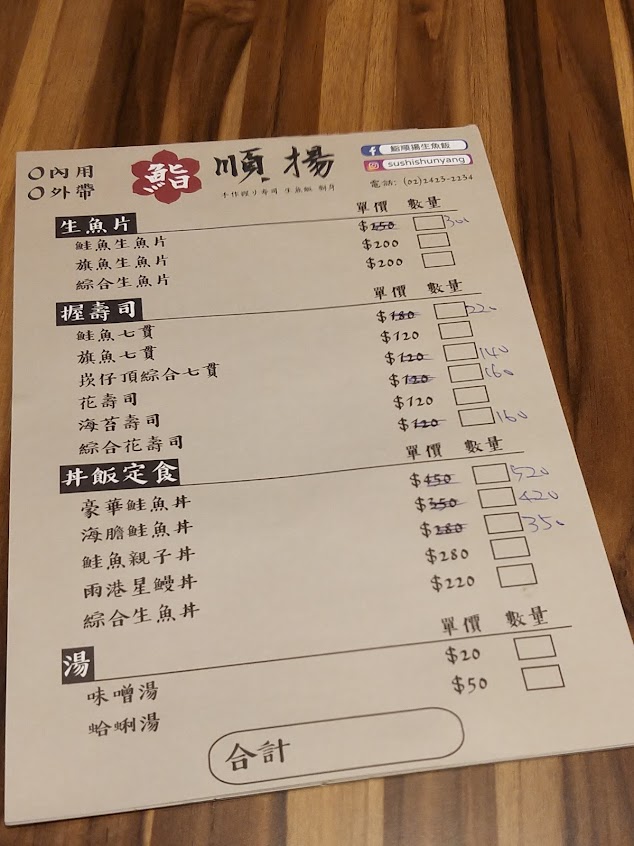 內用
外帶
鮨 順揚
手作握り寿司 生魚飯 刺身
鮨順揚生魚飯
sushishunyang
電話: (02)2423-2234
生魚片 單價 數量
鮭魚生魚片 $250 300
旗魚生魚片 $200
綜合生魚片 $200
握壽司 單價 數量
鮭魚七貫 $180 220
旗魚七貫 $120
崁仔頂綜合七貫 $120 140
花壽司 $120 160
海苔壽司 $120
綜合花壽司 $120 160
丼飯定食 單價 數量
豪華鮭魚丼 $450 520
海膽鮭魚丼 $350 420
鮭魚親子丼 $280 350
雨港星鰻丼 $280
綜合生魚丼 $220
湯 單價 數量
味噌湯 $20
蛤蜊湯 $50
合計